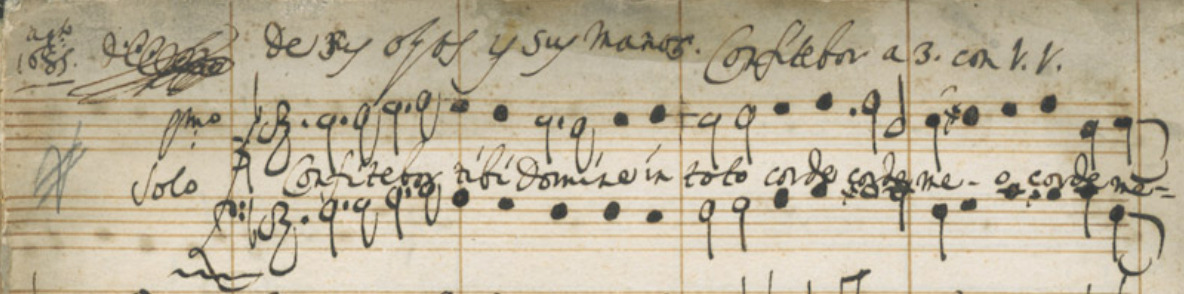 agto
1685. De sus ojos y sus manos. Confitebor a 3. con V. V.
pmo
Solo Confitebor tibi domine in toto corde corde me-o corde me-